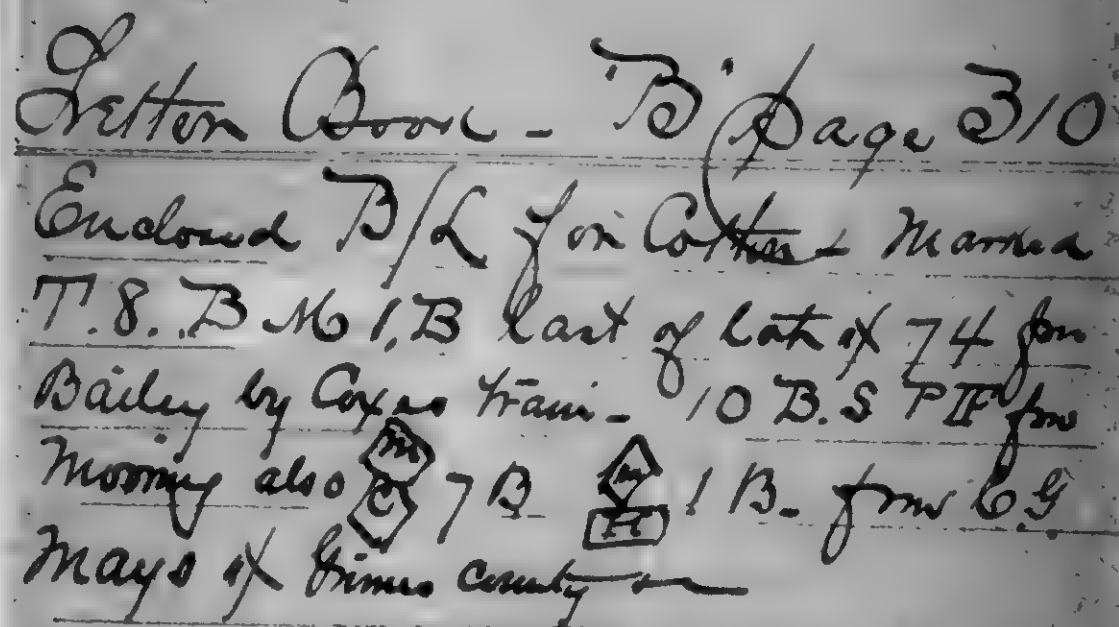 Letter Book - "B" page 310
Enclosed B/L for Cotton Marked
T. 8. B M 1, B last of lot of 74 from
Bailey by Coxes train - 10 B. S P II from
Morning also M C 7 B M H 1 B. from C G
Mays of Grimes County